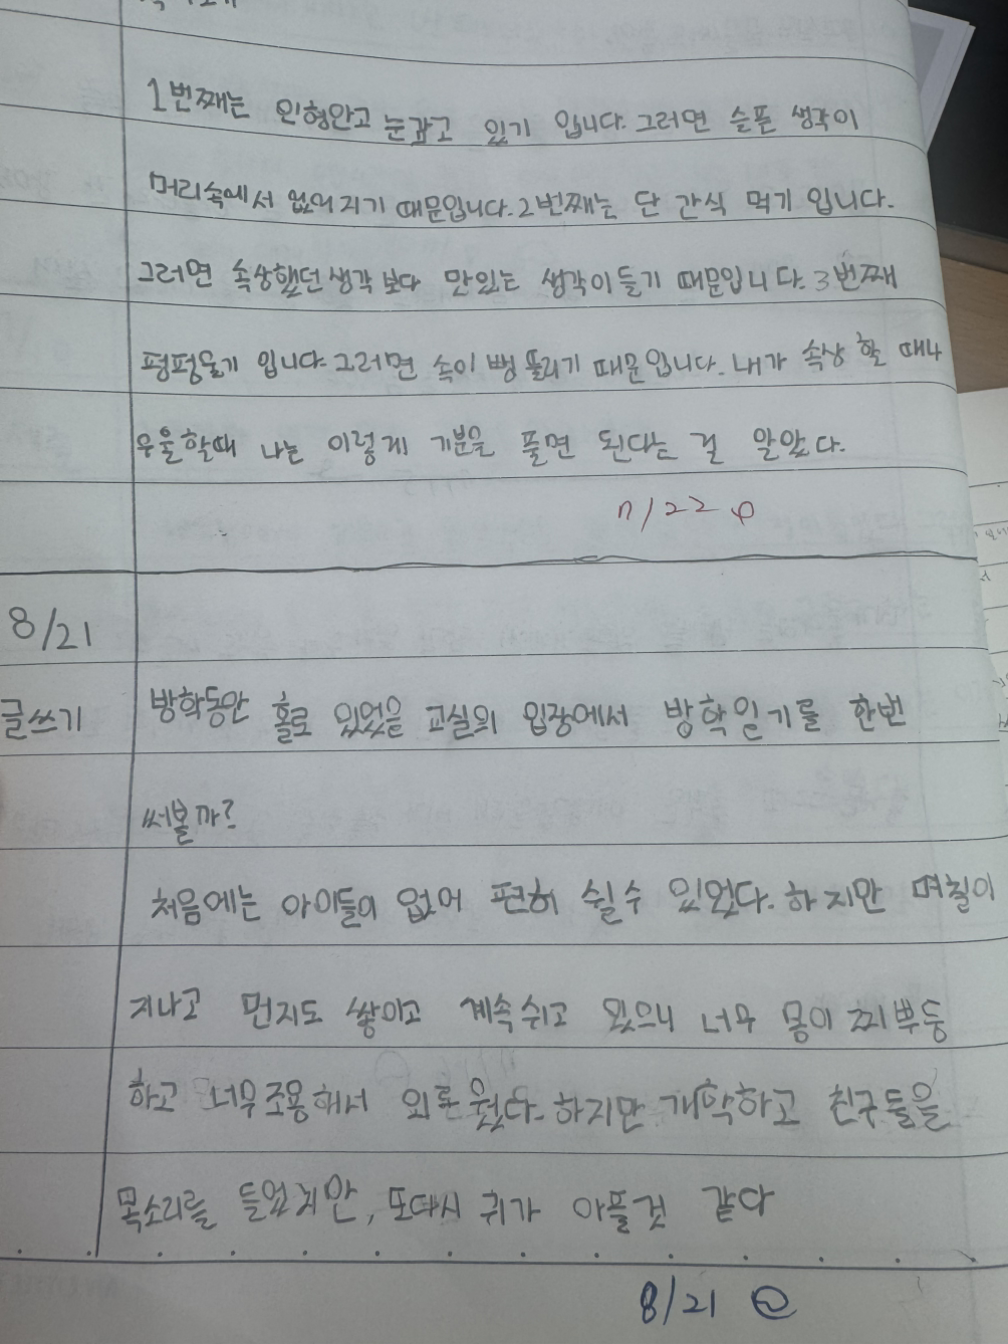 1번째는 인형안고 눈감고 있기 입니다. 그러면 슬픈 생각이
머리속에서 없어지기 때문입니다. 2번째는 단 간식 먹기 입니다.
그러면 속상했던 생각 보다 맛있는 생각이 들기 때문입니다. 3번째
펑펑울기 입니다. 그러면 속이 뻥 뚤리기 때문입니다. 내가 속상 할 때나
우울할때 나는 이렇게 기분을 풀면 된다는 걸 알았다.
8/21
글쓰기
방학동안 홀로 있었을 교실의 입장에서 방학일기를 한번
써볼까?
처음에는 아이들이 없어 편히 쉴수 있었다. 하지만 며칠이
지나고 먼지도 쌓이고 계속 쉬고 있으니 너무 몸이 찌뿌둥
하고 너무 조용해서 외로웠다. 하지만 개학하고 친구들을
목소리를 들었지만, 또다시 귀가 아플것 같다
8/21